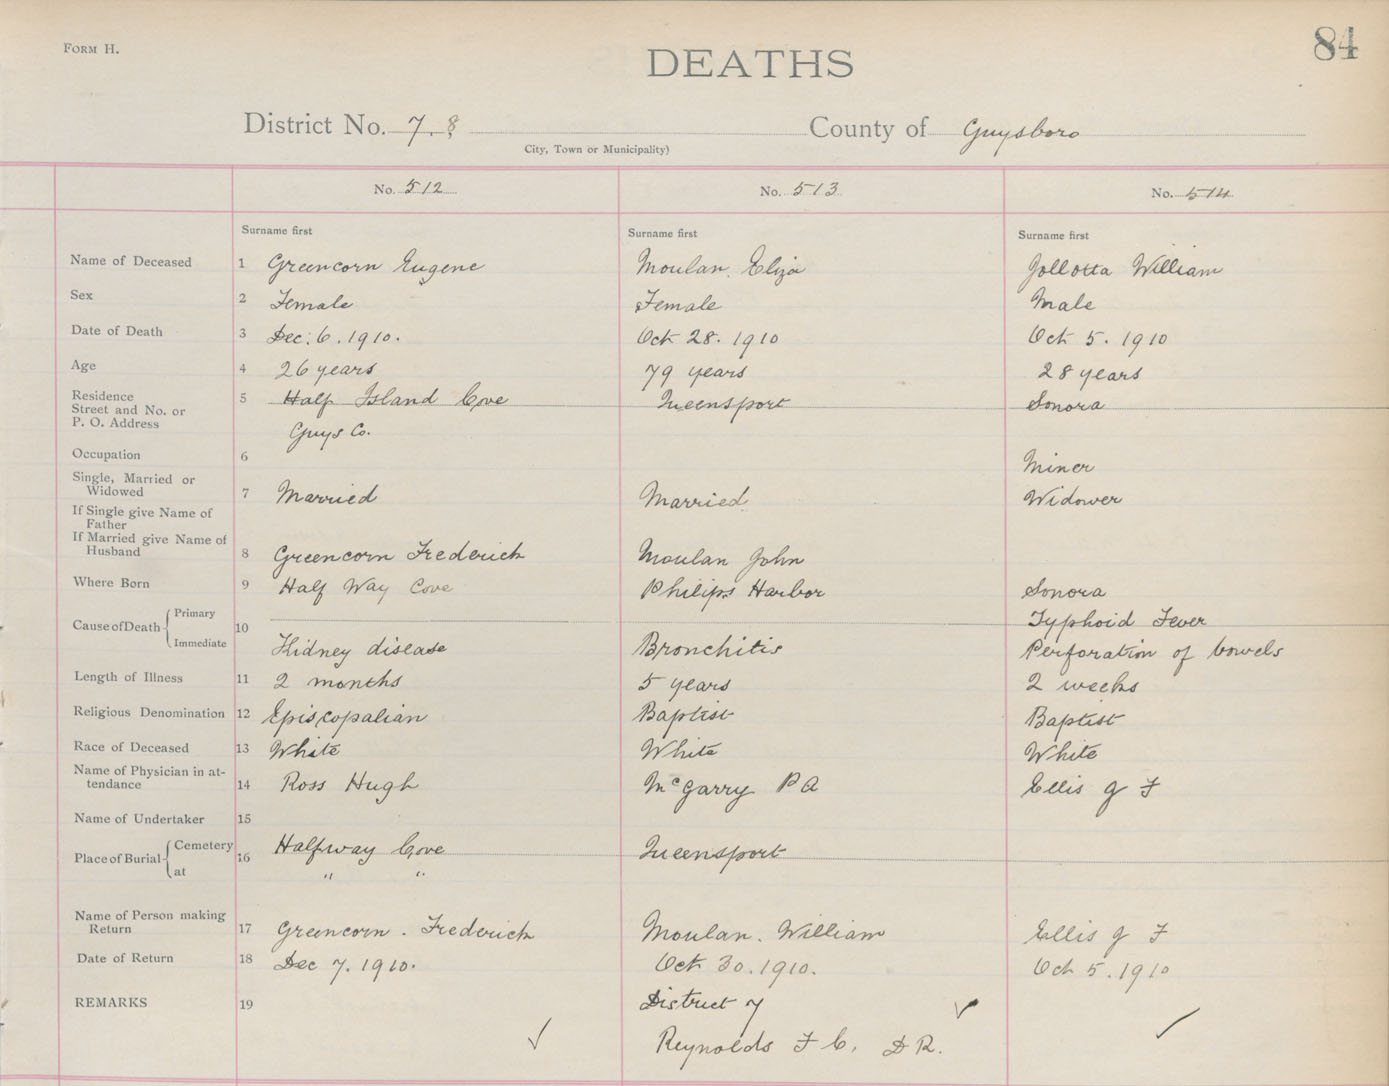 FORM H.
84
DEATHS
District No. 7. 8
County of Guysboro
City, Town or Municipality)
No. 512
No. 513
No. 514
Surname first
Surname first
Surname first
Name of Deceased 1 Greencorn Eugene Moulan. Eliza Jollotta William
Sex 2 Female Female Male
Date of Death 3 Dec. 6. 1910. Oct 28. 1910 Oct 5. 1910
Age 4 26 years 79 years 28 years
Residence 5 Half Island Cove Queensport Sonora
Street and No. or
P. O. Address
Guys Co.
Occupation 6 Miner
Single, Married or
Widowed 7 Married Married Widower
If Single give Name of
Father
If Married give Name of
Husband 8 Greencorn Frederick Moulan John
Where Born 9 Half Way Cove Philips Harbor Sonora
Cause of Death 10 Primary Typhoid Fever
Immediate Kidney disease Bronchitis Perforation of bowels
Length of Illness 11 2 months 5 years 2 weeks
Religious Denomination 12 Episcopalian Baptist Baptist
Race of Deceased 13 White White White
Name of Physician in at-
tendance 14 Ross Hugh McGarry P A Ellis J F
Name of Undertaker 15
Place of Burial 16 Cemetery Halfway Cove Queensport
at " "
Name of Person making
Return 17 Greencorn. Frederick Moulan. William Ellis J F
Date of Return 18 Dec 7. 1910. Oct 30. 1910. Oct 5. 1910
REMARKS 19 District 7
Reynolds F C. D R.